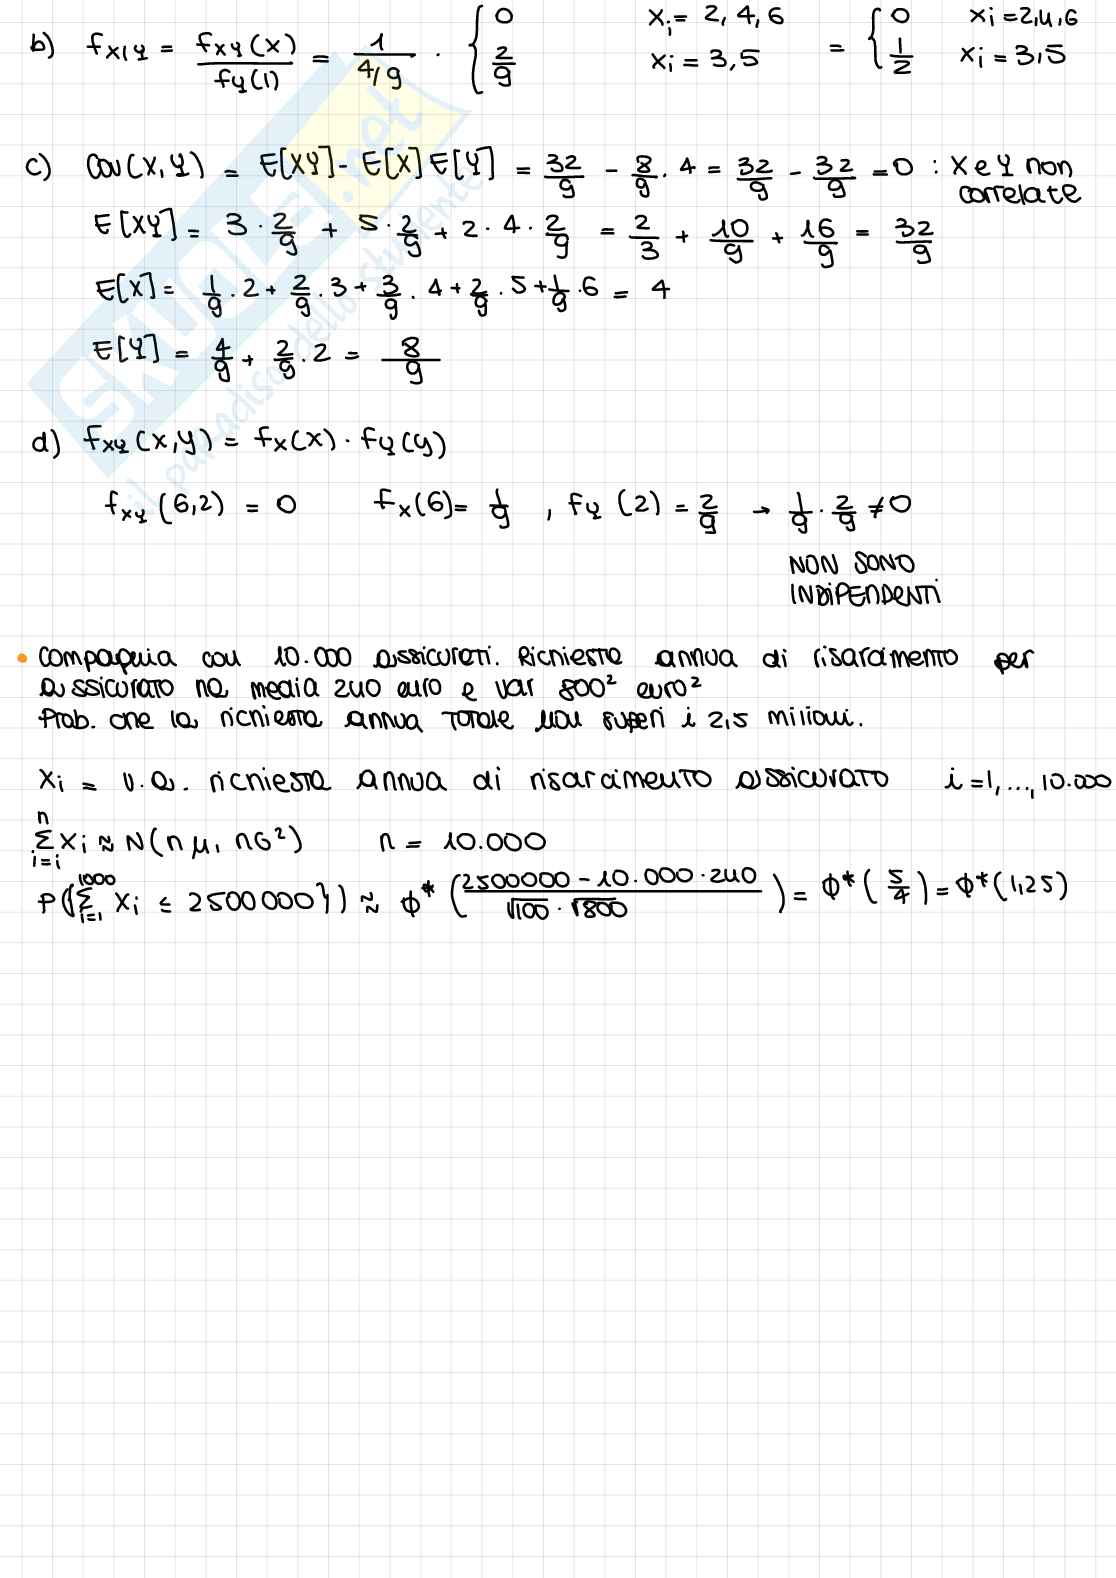 b) f_{X|Y} = \frac{f_{XY}(x)}{f_Y(1)} = \frac{1}{4/9} \cdot \begin{cases} 0 & x_i = 2, 4, 6 \\ \frac{2}{9} & x_i = 3, 5 \end{cases} = \begin{cases} 0 & x_i = 2,4,6 \\ \frac{1}{2} & x_i = 3,5 \end{cases}
c) Cov(X,Y) = E[XY] - E[X]E[Y] = \frac{32}{9} - \frac{8}{9} \cdot 4 = \frac{32}{9} - \frac{32}{9} = 0 : X e Y non
correlate
E[XY] = 3 \cdot \frac{2}{9} + 5 \cdot \frac{2}{9} + 2 \cdot 4 \cdot \frac{2}{9} = \frac{2}{3} + \frac{10}{9} + \frac{16}{9} = \frac{32}{9}
E[X] = \frac{1}{9} \cdot 2 + \frac{2}{9} \cdot 3 + \frac{3}{9} \cdot 4 + \frac{2}{9} \cdot 5 + \frac{1}{9} \cdot 6 = 4
E[Y] = \frac{4}{9} + \frac{2}{9} \cdot 2 = \frac{8}{9}
d) f_{XY}(x,y) = f_X(x) \cdot f_Y(y)
f_{XY}(6,2) = 0 f_X(6) = \frac{1}{9} , f_Y(2) = \frac{2}{9} → \frac{1}{9} \cdot \frac{2}{9} ≠ 0
NON SONO
INDIPENDENTI
• Compagnia con 10.000 assicurati. Richiesta annua di risarcimento per
assicurato ha media 240 euro e var 800² euro²
Prob. che la richiesta annua totale non superi i 2,5 milioni.
X_i = v.a. richiesta annua di risarcimento assicurato i = 1, ..., 10.000
\sum_{i=i}^{n} X_i ≈ N(nμ, nσ²) n = 10.000
P({\sum_{i=1}^{1000} X_i ≤ 2500000}) ≈ Φ* (\frac{2500000 - 10.000 \cdot 240}{\sqrt{100} \cdot \sqrt{800}}) = Φ* (\frac{5}{4}) = Φ*(1,25)
SKUOLA.net
il paradiso dello studente